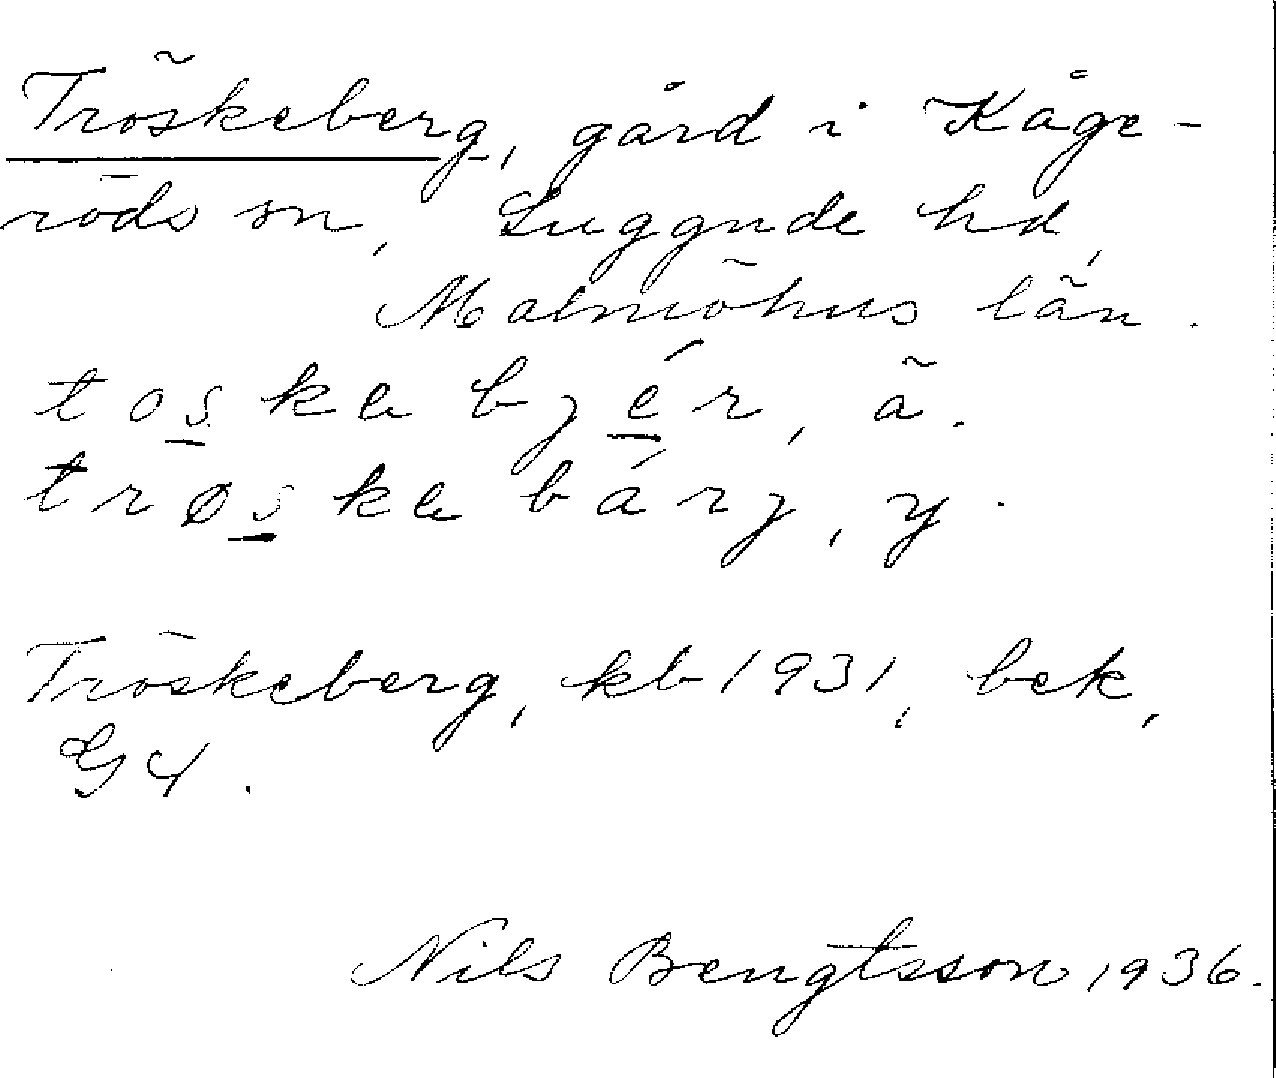 Tröskeberg, gård i Kåge-
röds sn, Luggude hd,
Malmöhus län.
toskabjér, ä.
trøskabárj, y.
Tröskeberg, kb 1931, bek,
G4.
Nils Bengtsson 1936.